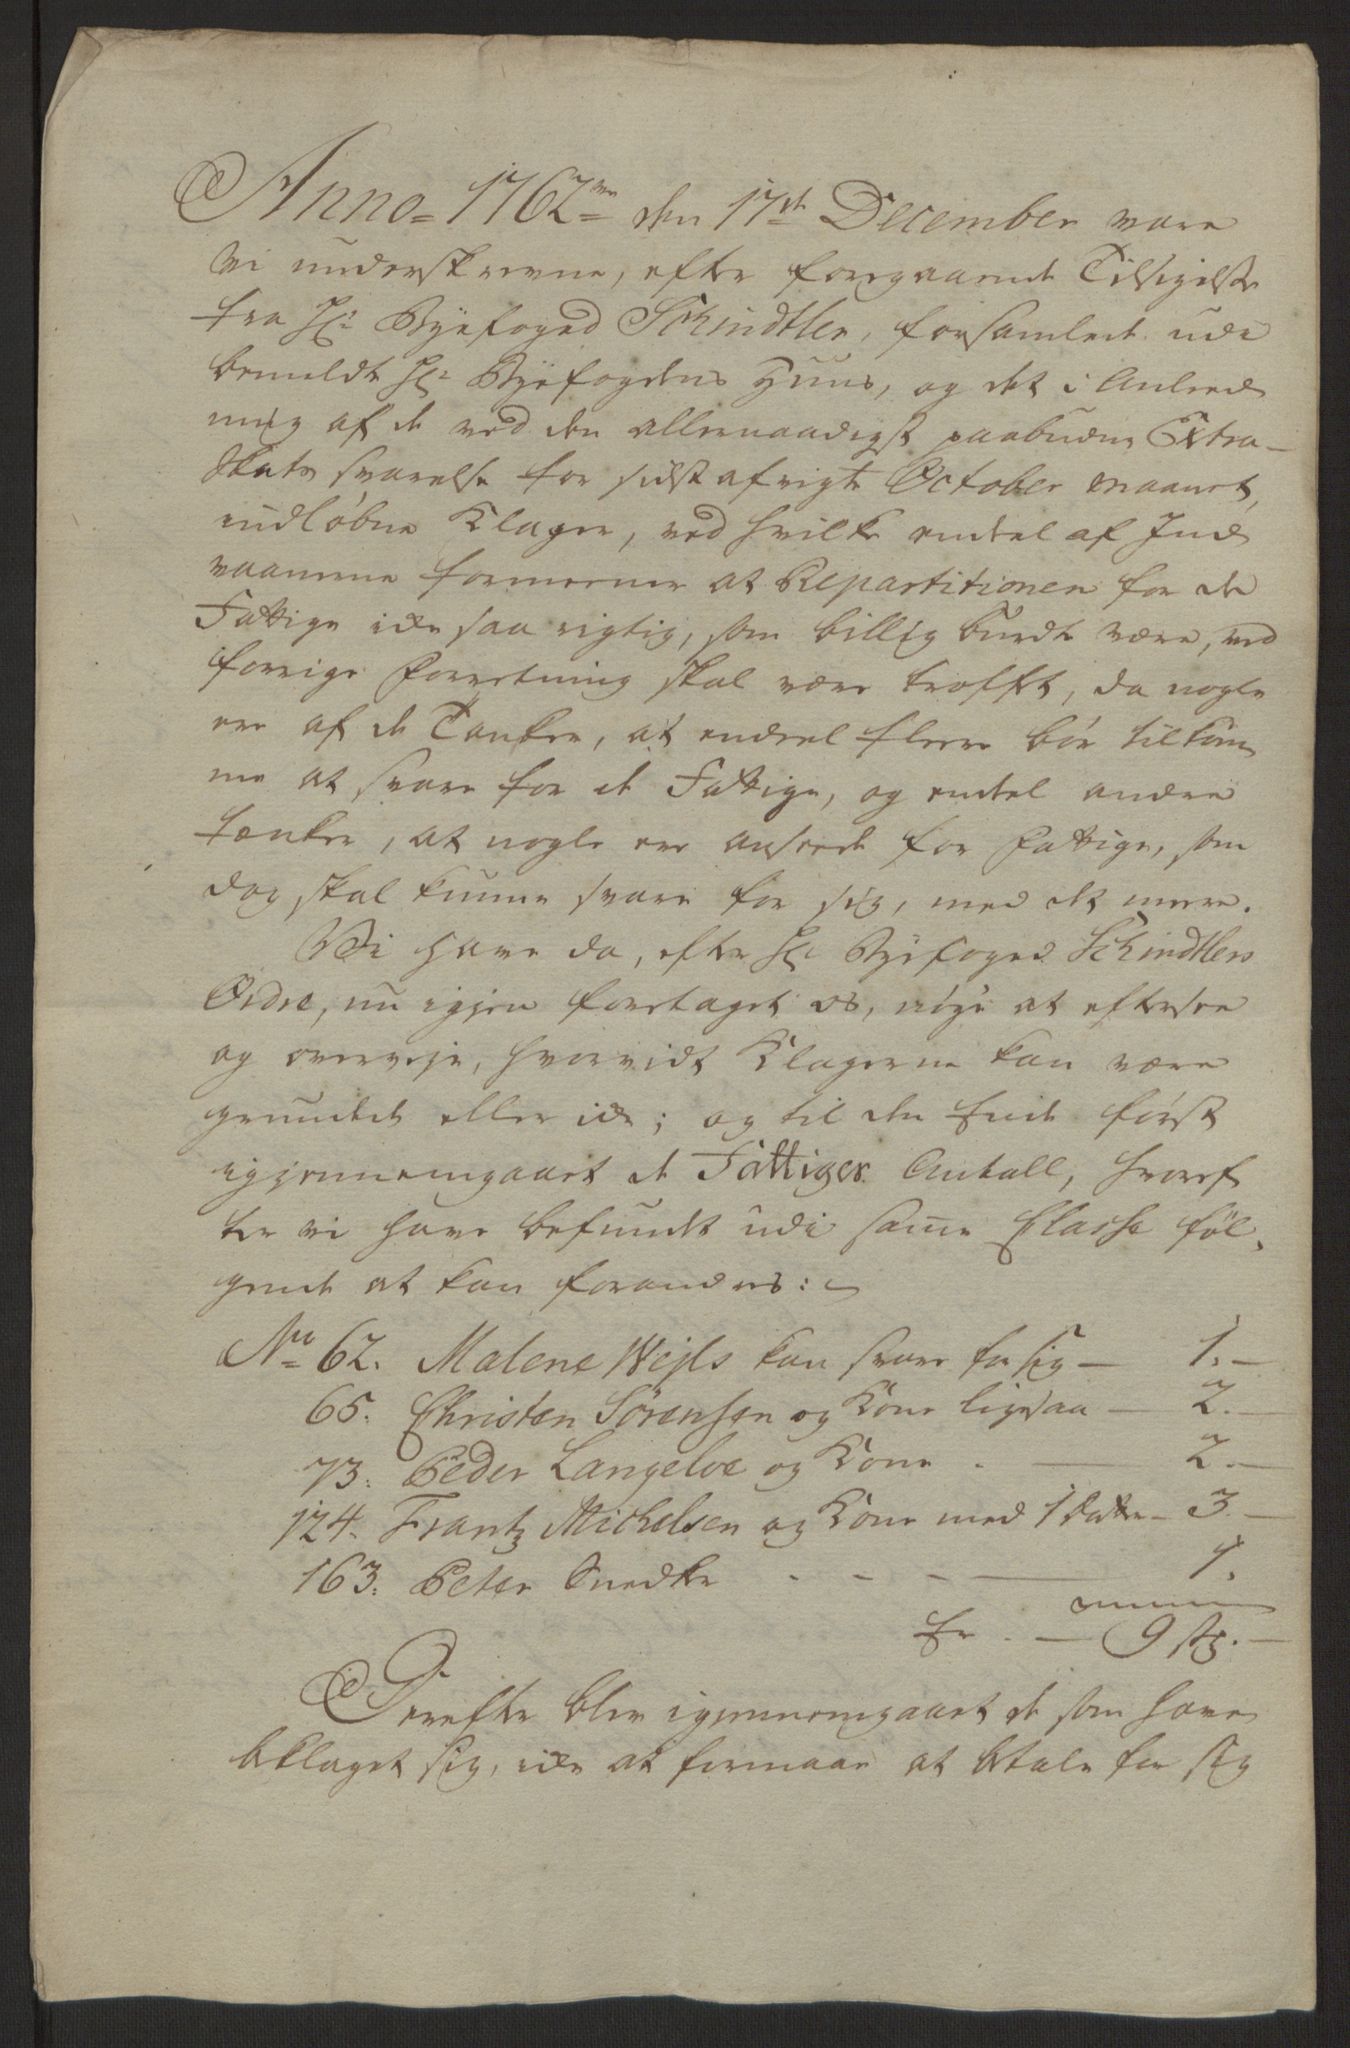 Anno 1762 den 17de December vare
Vi underskrevne, efter foregaaende Tilsigelse
fra Hr: Byefoged Schindtler, forsamlede udi
bemeldte Hr: Byefogdens Huus, og det i Anled
ning af de ved den allernaadigst paabudne Extra
Skats svarelse for sidst afvigte October Maanet,
indløbne Klager, ved hvilke endeel af Ind
vaanerne formeener at Repartitionen for de
Fattige icke saa rigtig, som billig burde være, ved
forrige Forretning skal være troffet, da nogle
ere af de Tanker, at endeel fleere bør tilkom
me at svare for de Fattige, og endeel andre
tænker, at nogle ere anseede for Fattige, som
dog skal kunne svare for sig, med det meere.
Vi have da, efter Hr: Byefoged Schindtlers
Ordre, nu igjen foretaget os, nøye at eftersee
og overveje, hvorvidt Klagerne kan være
grundede eller icke; og til den Ende først
igjennemgaaet de Fattiges Antall, hvoref
ter vi have befundet udi samme Classe føl
gende at kan forandres:
No 62. Malene Wejls kan svare for sig — 1. —
65. Christen Sørensen og Kone ligesaa — 2. —
73. Peder Langeloe og Kone . — 2. —
124. Frantz Michelsen og Kone med 1 Datter — 3. —
163. Peter Snedker - - - — 1.
Er . — 9 stk. —
Derefter blev igjennemgaaet de som have
beklaget sig, icke at formaae at betale for sig